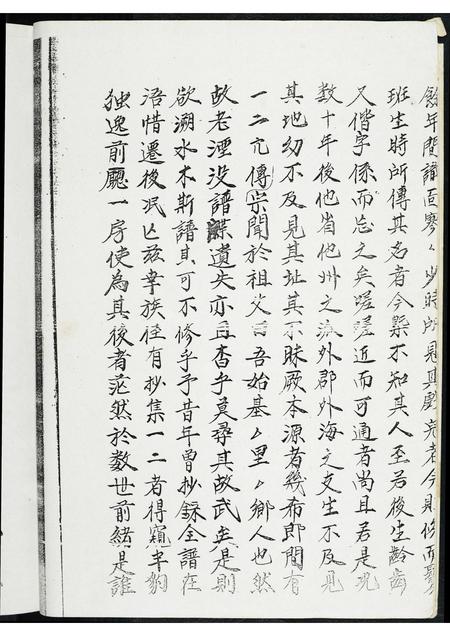 餘年間譜面寥々少時所見其戲完者今則修而鬚
班生時所傳其名者今槩不知其人至若後生齡齒
又偕字係而忘之矣嗟嗟近而可通者尚且若是況
數十年後他省他州之派外郡外海之支生不及見
其地幼不及見其址其不昧厥本源者幾希即間有
一二亢傳宗聞於祖父曰吾始基々里々鄉人也然
故老湮没譜牒遺失亦且杳乎莫尋其故武矣是則
欲溯水木斯譜其可不修乎予昔年曾抄錄全譜在
浯惜遷後泯亡兹幸族侄有抄集一二者得窺半豹
独逸前廳一房使為其後者茫然於数世前緒是誰